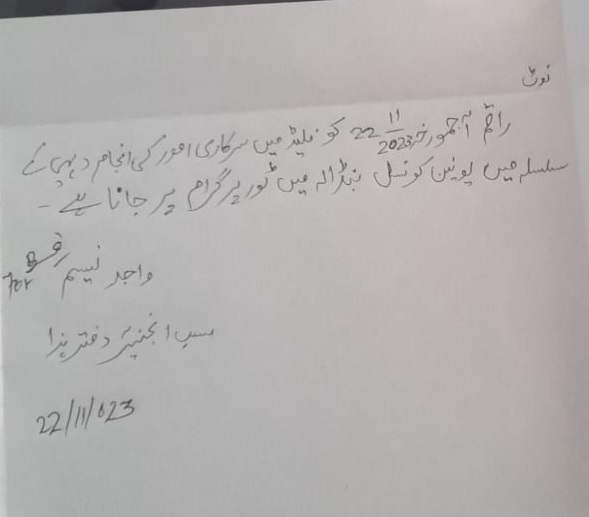 نوٹ
راقم آج مورخہ 22 11/2023 کو فیلڈ میں سرکاری امور کی انجام دہی کے
سلسلہ میں یونین کونسل بنڈالہ میں ٹور پرگرام پر جانا ہے۔
واجد نسیم
سب انجنیئر دفتر ہذا
22/11/023